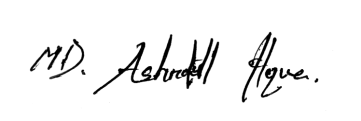 MD. Ashraful Hque.